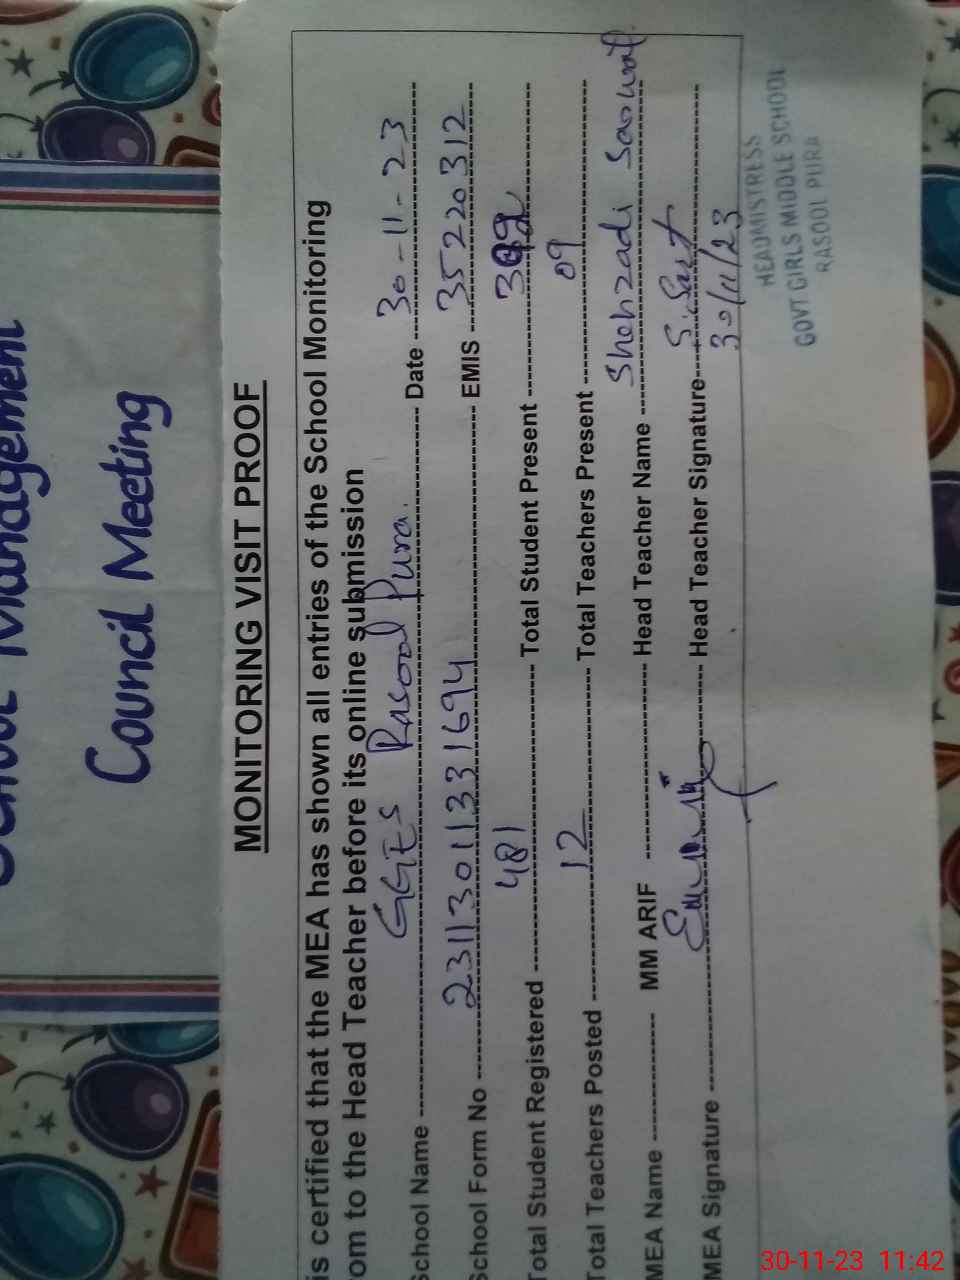 Management
Council Meeting
MONITORING VISIT PROOF
is certified that the MEA has shown all entries of the School Monitoring
om to the Head Teacher before its online submission
School Name GGES Rasool Pura. Date 30-11-23
School Form No 23113011331694 EMIS 35220312
Total Student Registered 481 Total Student Present
Total Teachers Posted 12 Total Teachers Present 09
MEA Name MM ARIF Head Teacher Name Shehzadi Sarwat
MEA Signature Head Teacher Signature
30/11/23
HEADMISTRESS
GOVT GIRLS MIDDLE SCHOOL
RASOOL PURA
30-11-23 11:42